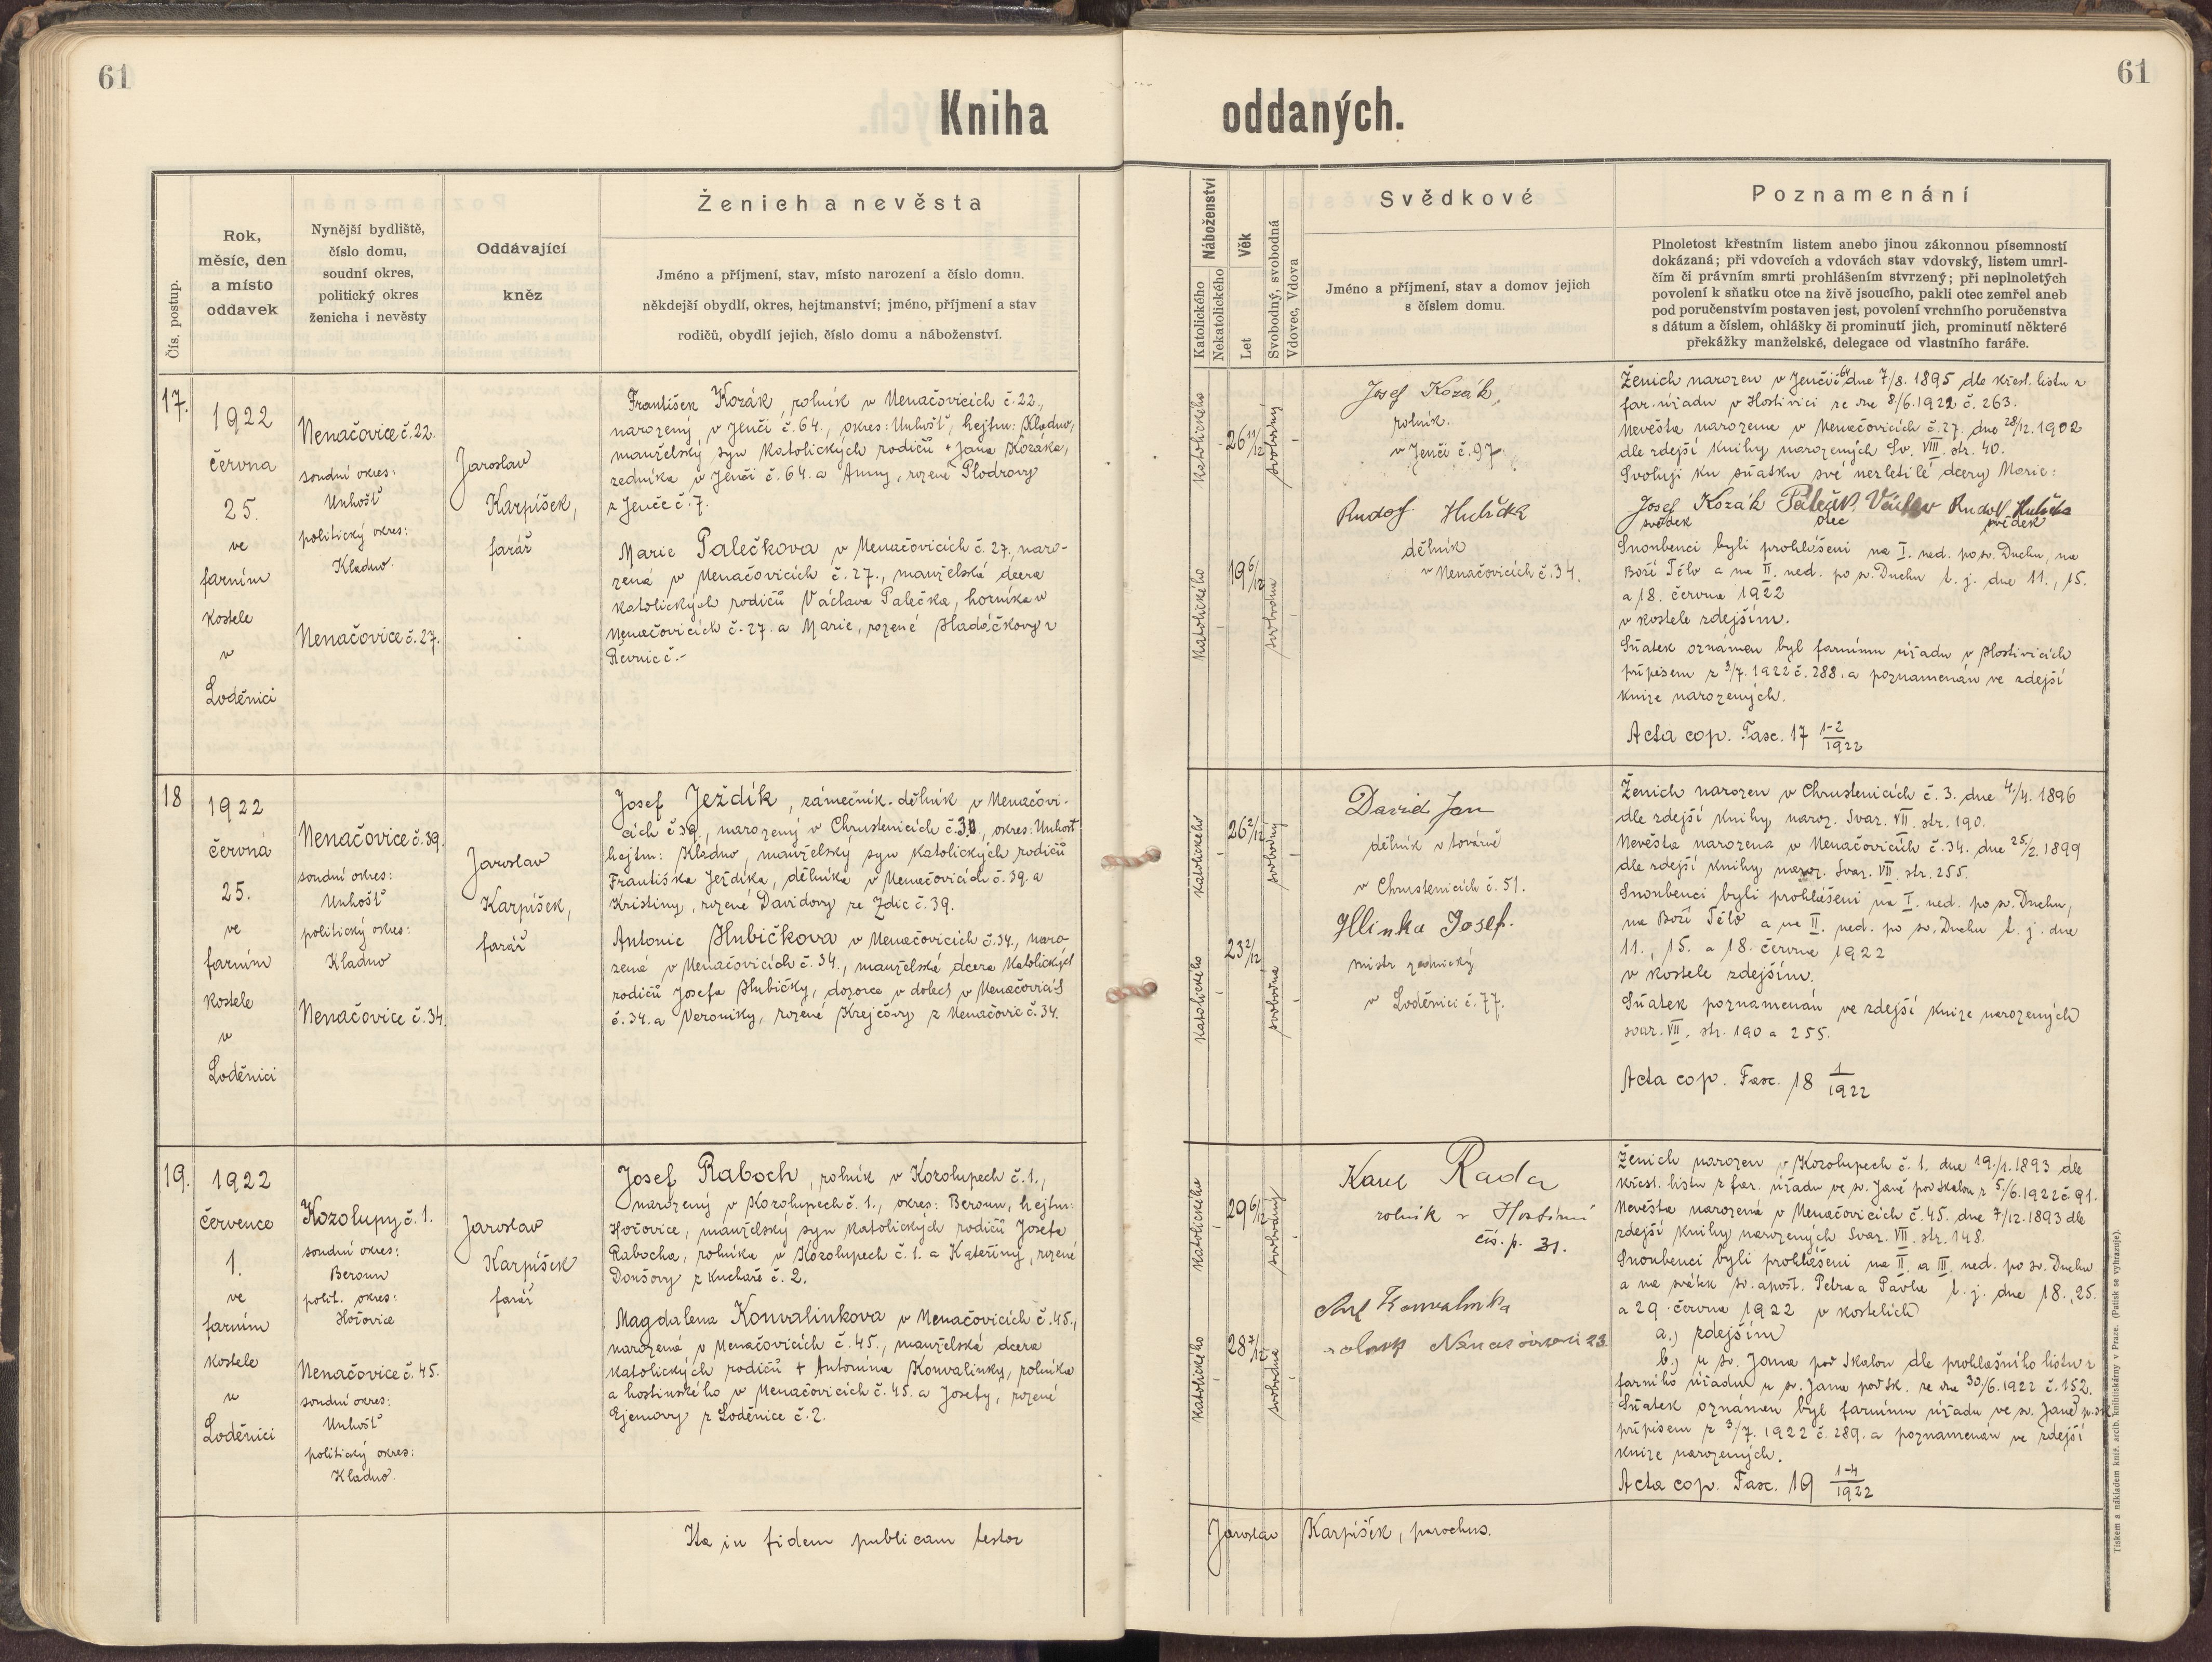 61
61
Kniha oddaných.
Čís. postup.
Rok,
měsíc, den
a místo
oddavek
Nynější bydliště,
číslo domu,
soudní okres,
politický okres
ženicha i nevěsty
Oddávající
kněz
Ženich a nevěsta
Jméno a příjmení, stav, místo narození a číslo domu.
někdejší obydlí, okres, hejtmanství; jméno, příjmení a stav
rodičů, obydlí jejich, číslo domu a náboženství.
Náboženství
Katolického
Nekatolického
Věk
Let
Svobodný, svobodná
Vdovec, Vdova
Svědkové
Jméno a příjmení, stav a domov jejich
s číslem domu.
Poznamenání
Plnoletost křestním listem anebo jinou zákonnou písemností
dokázaná; při vdovcích a vdovách stav vdovský, listem umrl-
čím či právním smrti prohlášením stvrzený; při neplnoletých
povolení k sňatku otce na živě jsoucího, pakli otec zemřel aneb
pod poručenstvím postaven jest, povolení vrchního poručenstva
s dátum a číslem, ohlášky či prominutí jich, prominutí některé
překážky manželské, delegace od vlastního faráře.
17.
1922
června
25.
ve
farním
kostele
v
Loděnici
Nenačovice č. 22.
soudní okres:
Unhošť
politický okres:
Kladno.
Nenačovice č. 27.
Jaroslav
Karpíšek,
farář
František Kozák, rolník v Nenačovicích č. 22.,
narozený v Jenči č. 64., okres: Unhošť, hejtm: Kladno,
manželský syn katolických rodičů + Jana Kozáka,
zedníka v Jenči č. 64. a Anny, rozené Plodrovy
z Jenče č. 7.
Marie Palečkova v Nenačovicích č. 27., naro-
zená v Nenačovicích č. 27., manželská dcera
katolických rodičů Václava Palečka, horníka v
Nenačovicích č. 27. a Marie, rozené Hladíčkovy z
Řevnic č. -
Katolického
26 11/12
svobodný
Katolického
19 6/12
svobodna
Josef Kozák,
rolník.
v Jenči č. 97
Rudolf Hubička
dělník
v Nenačovicích č. 34.
Ženich narozen v Jenči č. 64 dne 7/8. 1895 dle křest. listu z
far. úřadu v Hostivici ze dne 8/6. 1922 č. 263.
Nevěsta narozena v Nenačovicích č. 27. dne 28/12. 1902
dle zdejší knihy narozených Sv. VIII. str. 40.
Svoluji ku sňatku své nezletilé dcery Marie:
Josef Kozák Paleček Václav Rudolf Hubička
svědek otec svědek
Snoubenci byli prohlášeni na I. ned. po sv. Duchu, na
Boží Tělo a na II. ned. po sv. Duchu t. j. dne 11., 15.
a 18. června 1922
v kostele zdejším.
Sňatek oznámen byl farnímu úřadu v Hostivicích
přípisem z 3/7. 1922 č. 288. a poznamenán ve zdejší
knize narozených.
Acta cop. Fasc. 17 1-2/1922
18
1922
června
25.
ve
farním
kostele
v
Loděnici
Nenačovice č. 39.
soudní okres:
Unhošť
politický okres:
Kladno
Nenačovice č. 34.
Jaroslav
Karpíšek,
farář
Josef Ježdík, zámečník-dělník v Nenačovi-
cích č 39., narozený v Chrustenicích č. 3, okres: Unhošť
hejtm: Kladno, manželský syn katolických rodičů
Františka Ježdíka, dělníka v Nenačovicích č. 39. a
Kristiny, rozené Davidovy ze Zdic č. 39.
Antonie Hubičkova v Nenačovicích č. 34., naro-
zená v Nenačovicích č. 34., manželská dcera katolických
rodičů Josefa Hubičky, dozorce v dolech v Nenačovicích
č. 34. a Veroniky, rozené Krejčovy z Nenačovic č. 34.
Katolického
26 2/12
svobodný
Katolického
23 2/12
svobodna
David Jan
dělník v továrně
v Chrustenicích č. 51.
Hlinka Josef.
mistr zednický
v Loděnici č. 77.
Ženich narozen v Chrustenicích č. 3. dne 4./4. 1896
dle zdejší knihy naroz. Svaz. VII. str. 190.
Nevěsta narozena v Nenačovicích č. 34. dne 25/2. 1899
dle zdejší knihy naroz. Svaz. VII. str. 255.
Snoubenci byli prohlášeni na I. ned. po sv. Duchu,
na Boží Tělo a na II. ned. po sv. Duchu t. j. dne
11., 15. a 18. června 1922
v kostele zdejším.
Sňatek poznamenán ve zdejší knize narozených
svaz. VII. str. 190 a 255.
Acta cop. Fasc. 18 1/1922
19.
1922
července
1.
ve
farním
kostele
v
Loděnici
Kozolupy č. 1.
soudní okres:
Beroun
polit. okres:
Hořovice
Nenačovice č. 45.
soudní okres:
Unhošť
politický okres:
Kladno.
Jaroslav
Karpíšek
farář
Josef Raboch, rolník v Kozolupech č. 1.,
narozený v Kozolupech č. 1., okres: Beroun, hejtm:
Hořovice, manželský syn katolických rodičů Josefa
Rabocha, rolníka v Kozolupech č. 1. a Kateřiny, rozené
Doušovy z Kuchaře č. 2.
Magdalena Konvalinkova v Nenačovicích č. 45.,
narozená v Nenačovicích č. 45., manželská dcera
katolických rodičů + Antonína Konvalinky, rolníka
a hostinského v Nenačovicích č. 45. a Josefy, rozené
Ejemovy z Loděnice č. 2.
Katolického
29 6/12
svobodný
Katolického
28 7/12
svobodna
Karel Rada
rolník v Hostími
čís. p. 31.
Konvalinka
rolník 23
Ženich narozen v Kozolupech č. 1. dne 19./1. 1893 dle
křest. listu z far. úřadu ve sv. Janě pod Skalou z 5/6. 1922 č 91.
Nevěsta narozená v Nenačovicích č. 45. dne 7/12. 1893 dle
zdejší knihy narozených Svaz. VII. str. 148.
Snoubenci byli prohlášeni na II. a III. ned. po sv. Duchu
a na svátek sv. apošt. Petra a Pavla t. j. dne 18., 25.
a 29. června 1922 v kostelích
a.) zdejším
b.) u sv. Jana pod Skalou dle prohlašního listu z
farního úřadu u sv. Jana pod Sk. ze dne 30/6. 1922 č. 152.
Sňatek oznámen byl farnímu úřadu ve sv. Janě p. Sk.
přípisem z 3/7. 1922 č. 289. a poznamenán ve zdejší
knize narozených.
Acta cop. Fasc. 19 1-4/1922
Ita in fidem publicam testor Jaroslav Karpíšek, parochus.
Tiskem a nákladem kníž. arcib. knihtiskárny v Praze. (Patisk se vyhrazuje).